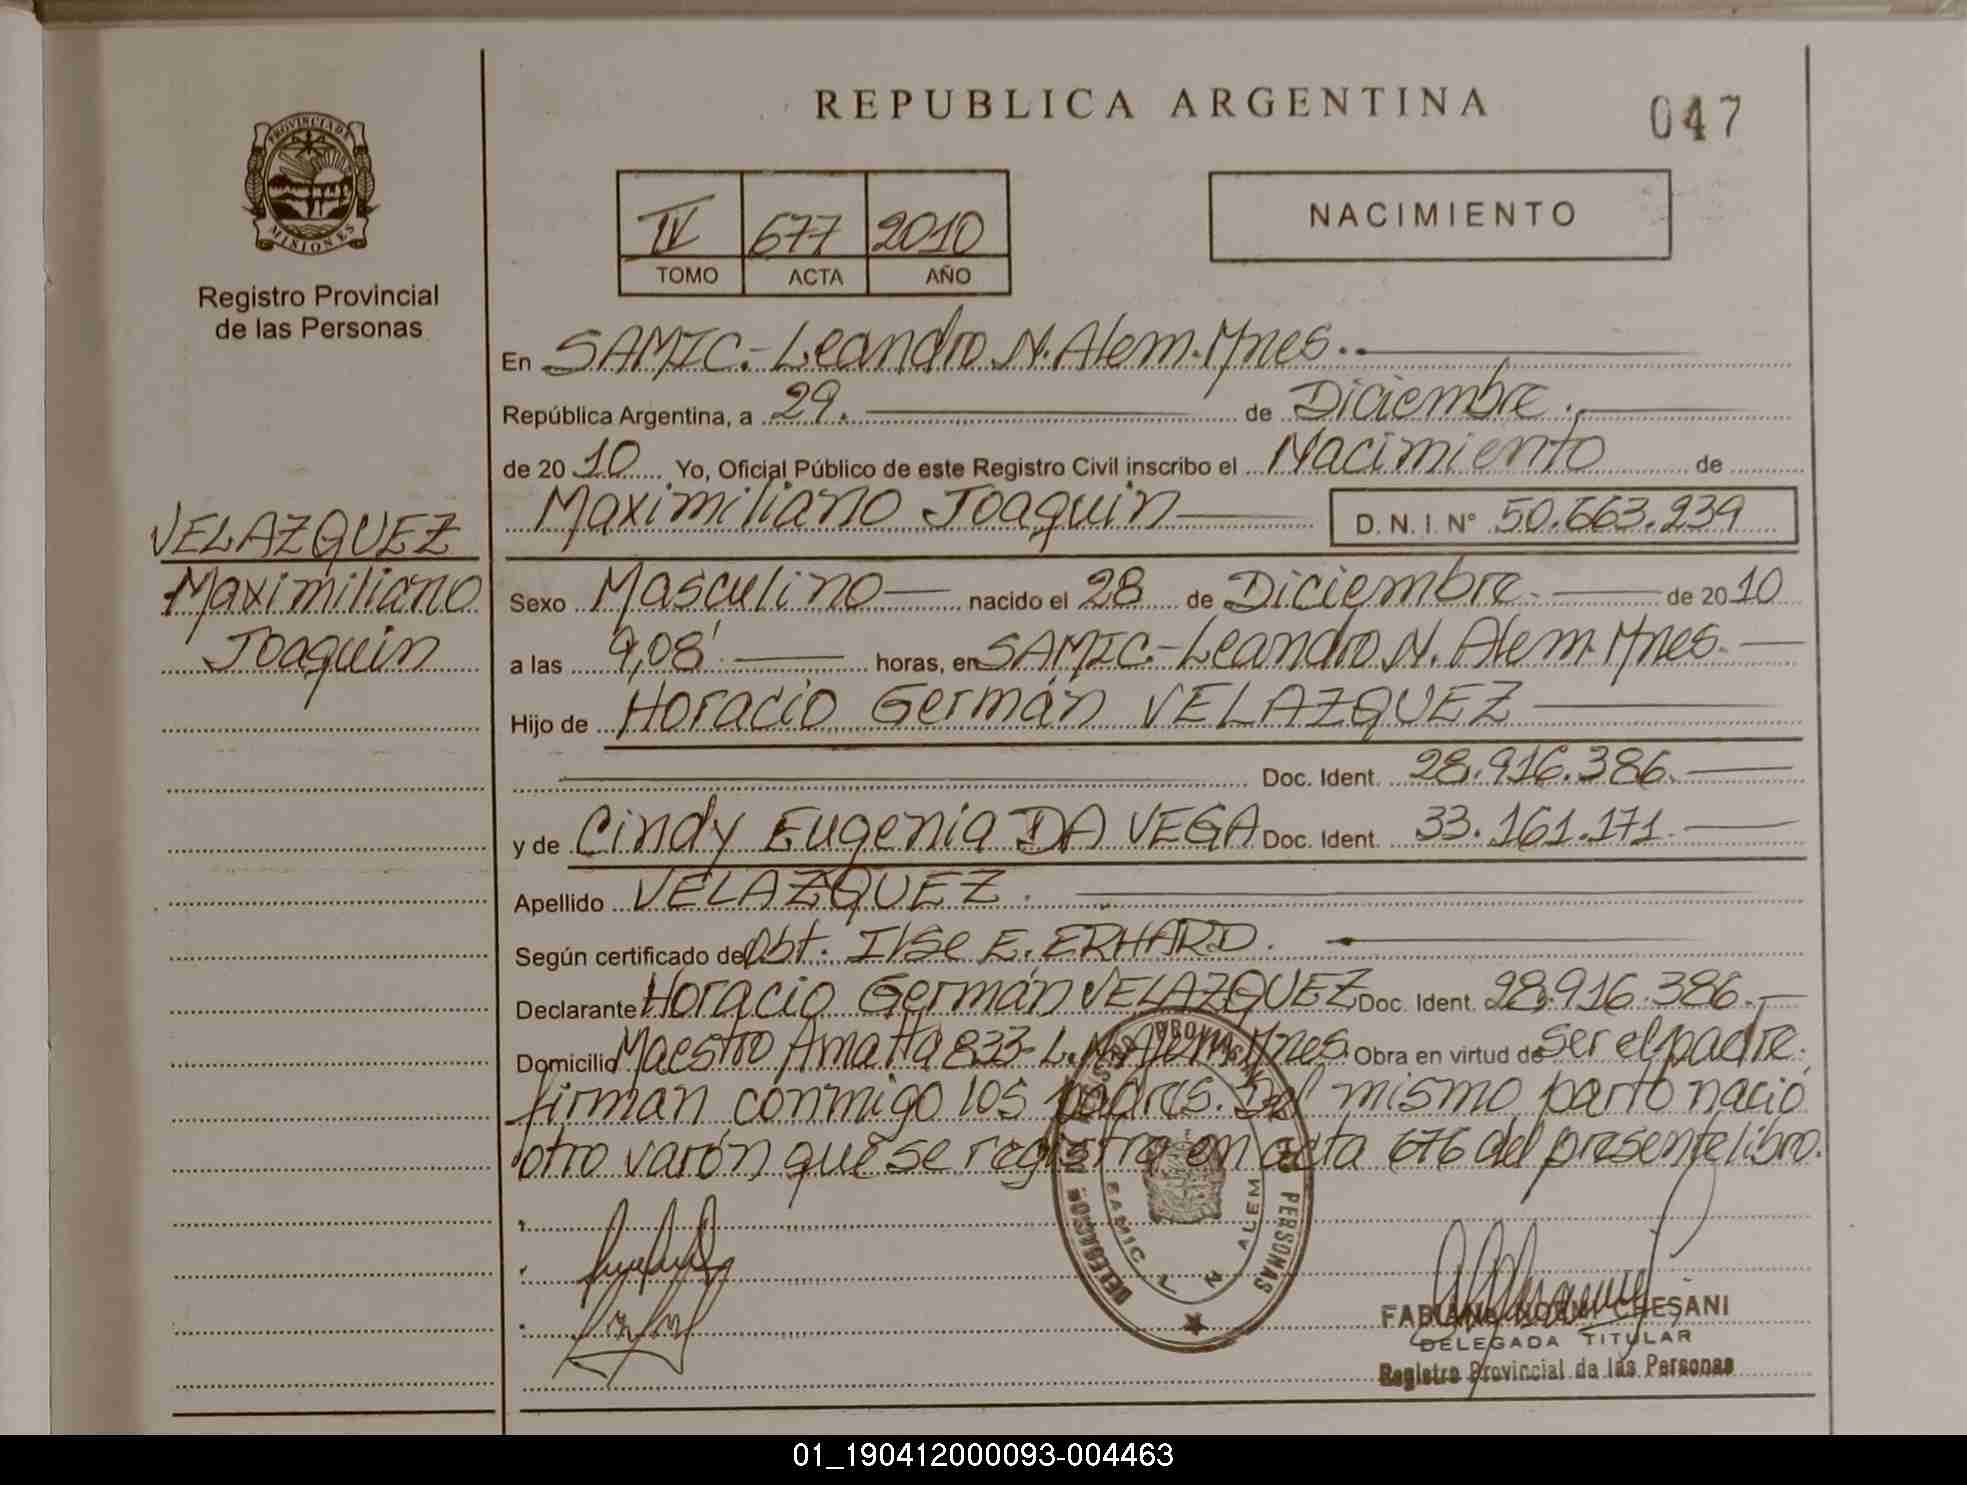 REPUBLICA ARGENTINA
047
PROVINCIA DE
MISIONES
Registro Provincial
de las Personas
IV 677 2010
TOMO ACTA AÑO
NACIMIENTO
En SAMIC.- Leandro N. Alem. Mnes.
República Argentina, a 29. de Diciembre.
de 2010 Yo, Oficial Público de este Registro Civil inscribo el Nacimiento de
Maximiliano Joaquin D. N. I. N° 50.663.239
VELAZQUEZ
Maximiliano
Joaquin
Sexo Masculino nacido el 28 de Diciembre. de 2010
a las 9,08' horas, en SAMIC.- Leandro N. Alem. Mnes.
Hijo de Horacio Germán VELAZQUEZ
Doc. Ident. 28.916.386.
y de Cindy Eugenia DA VEGA Doc. Ident. 33.161.171.
Apellido VELAZQUEZ.
Según certificado de Obt. Ilse E. ERHARD.
Declarante Horacio Germán VELAZQUEZ Doc. Ident. 28.916.386.-
Domicilio Maestro Amatta 833- L.N.Alem. Mnes. Obra en virtud de ser el padre.
firman conmigo los padres. Del mismo parto nació
otro varón que se registra en acta 676 del presente libro.
PERSONAS
SAMIC L N ALEM
FABIANA NOEMI CHESANI
DELEGADA TITULAR
Registro Provincial de las Personas
01_190412000093-004463